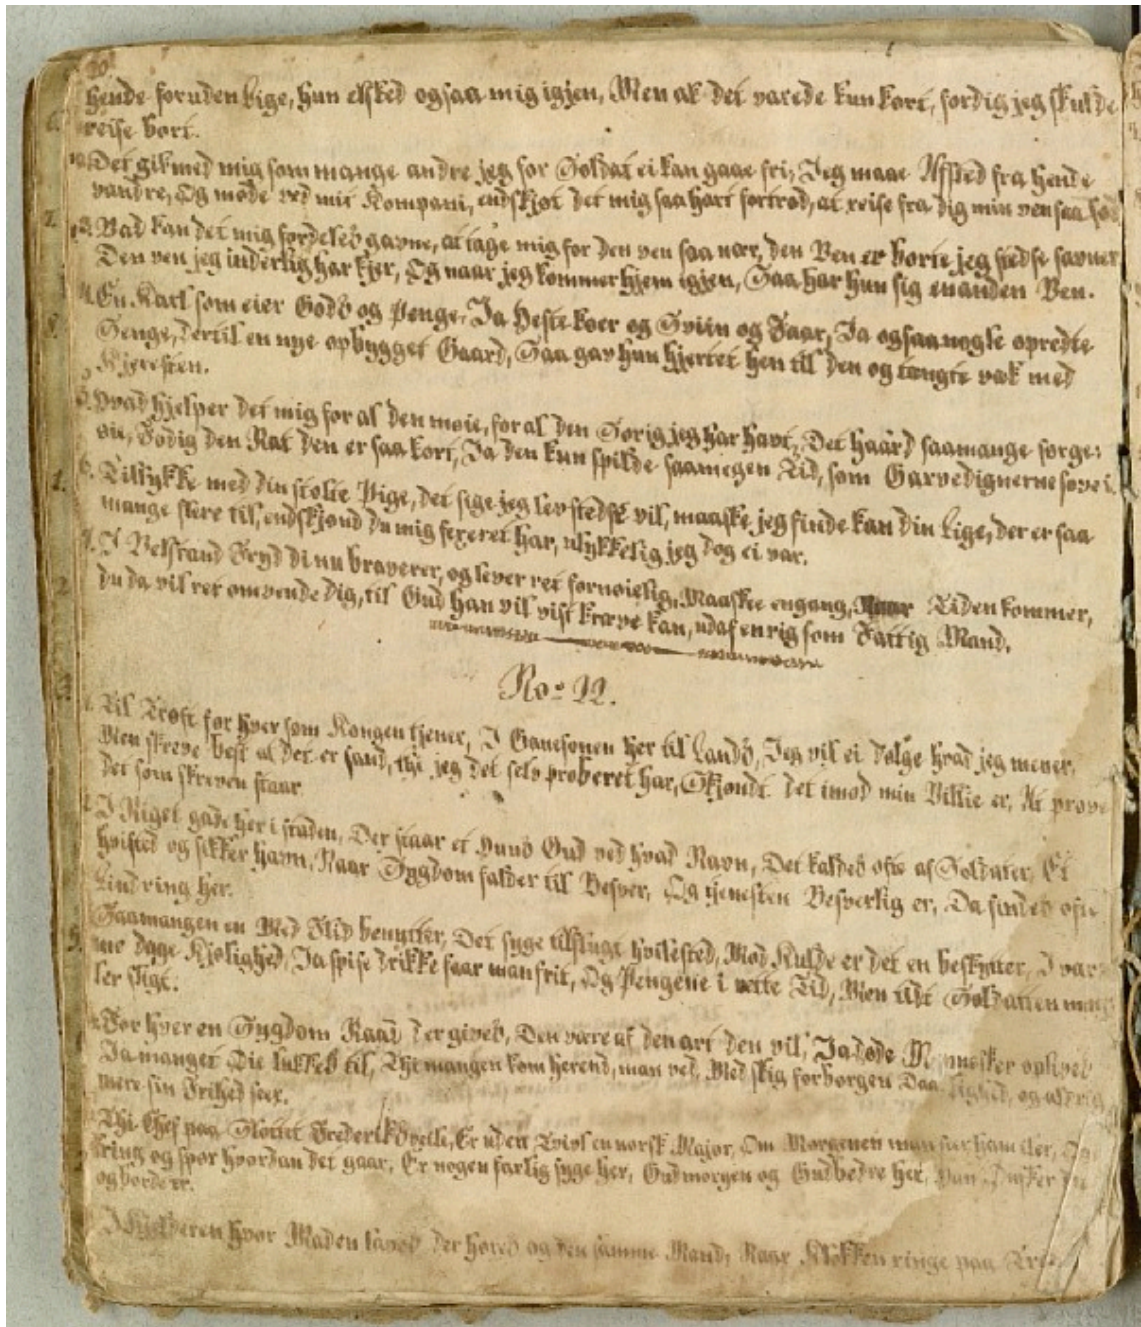 20
hende foruden Lige, hun elsked ogsaa mig igjen, Men ak det varede kun kort, fordig jeg skulde
reise bort.
2. Det gik med mig som mange andre jeg for Soldat ei kan gaae fri, Jeg maae Afsted fra hende
vandre, Og møde ved mit Kompani, endskjøt det mig saa hart fortrød, at reise fra dig min ven saa sød
3. Vad kan det mig fordeles gavne, at tage mig for den ven saa nær, den Ven er borte jeg stedse savner
Den ven jeg inderlig har kjer, Og naar jeg kommer hjem igjen, Saa har hun sig en anden Ven.
4. En Karl som eier Gods og Penge, Ja Heste koer og Sviin og Faar, Ja ogsaa nogle opredte
Senge, dertil en nye opbygget Gaard, Saa gav hun hjertet hen til den og tængte væk med
Kjeresten.
5. Hvad hjelper det mig for al den møie, for al den Sorig jeg har havt, Det haard saa mange sorge
oie, Fodig den Rat den er saa kort, Ja den kun spilde saamegen Tid, som Garvedignerne sove i.
6. Til lykke med din stolte Pige, det sige jeg lev stedse vil, maaske jeg finde kan din Lige, der er saa
mange flere til, endskjønd du mig fexeret har, ulykkelig jeg dog ei var.
7. I Velstand Fryd di nu braverer, og lever ret fornøielig, Maaskee engang, Naar Tiden kommer,
du da vil ret omvende dig, til Gud han vil vist kræve kan, udaf en rig som Fattig Mand.
No. 22.
1. Til Trøst for hver som Kongen tjener, I Ganesonen her til Lands, Jeg vil ei dølge hvad jeg mener,
Men skreve best al det er sand, thi jeg det selv proberet har, Skjøndt det imod min Villie er, At prøve
det som skreven staar
2. I Riget gade her i staden, Der staar et Huus Gud ved hvad Navn, Det kaldes ofte af Soldater, Et
hvisted og sikker havn, Naar Sygdom falder til Besver, Og tjenesten Besverlig er, Da findes ofte
Lindring her.
3. Saamangen en Med Flid benytter, Det syge tilflugt hvilested, Mod Kulde er det en beskytter, I var
me dage Kjølighed, Ja spise drikke faar man frit, Og Pengene i rette Tid, Men tidt Soldatten
ler sligt.
4. For hver en Sygdom Raad der gives, Den være af den art den vil, Ja døde Mennesker oplives
Ja manget Øie lukkes til, Thi mangen kom herend, man ved, Med slig forborgen Daarlighed, og aldrig
mere sin Frihed seer.
Thi Chef paa Slottet Frederiks Er uden Tvivl en norsk Major, Om Morgenen man seer ham iler,
kring og spør hvordan det gaar, Er nogen farlig syge her, Gud morgen og Gud bedre her, Han ønsker
og
I Kjelderen hvor Maden laves der høres og den samme Mand, Naar Klokken ringe paa